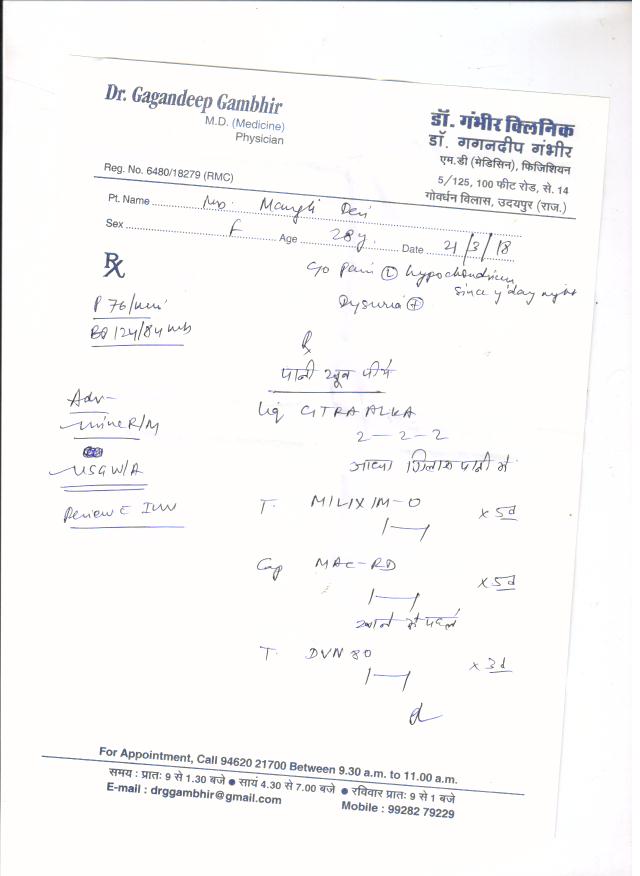 Dr. Gagandeep Gambhir
M.D. (Medicine)
Physician
Reg. No. 6480/18279 (RMC)
डॉ. गंभीर क्लिनिक
डॉ. गगनदीप गंभीर
एम.डी (मेडिसिन), फिजिशियन
5/125, 100 फीट रोड, से. 14
गोवर्धन विलास, उदयपुर (राज.)
Pt. Name Mrs. Mangli Devi
Sex F Age 28y. Date 21/3/18
Rx
C/o Pain (L) hypochondrium
since y'day night
Dysuria (+)
P 76/min
BP 124/84
Rx
पानी खूब पीये
Adv-
Urine R/M
USG W/A
Review c
Liq CITRA ALKA
2-2-2
आधा गिलास पानी में
T. MILIXIM-O x 5d
1-1
Cap MAC-RD x 5d
1-1
खाने से पहले
T. DVN 80 x 3d
1-1
For Appointment, Call 94620 21700 Between 9.30 a.m. to 11.00 a.m.
समय : प्रातः 9 से 1.30 बजे ● सायं 4.30 से 7.00 बजे ● रविवार प्रातः 9 से 1 बजे
E-mail : drggambhir@gmail.com Mobile : 99282 79229